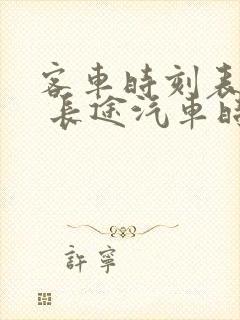 客車時刻表
長途汽車時
許寧